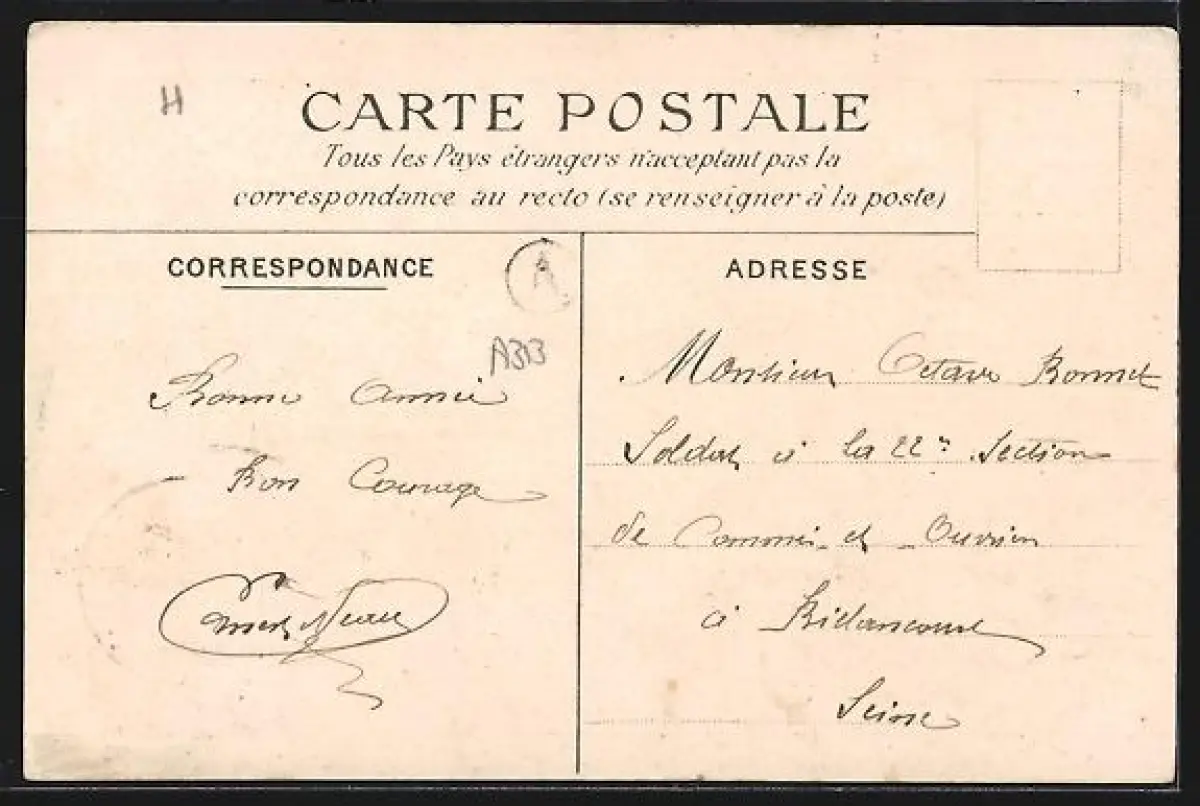 H
CARTE POSTALE
Tous les Pays étrangers n'acceptant pas la
correspondance au recto (se renseigner à la poste)
CORRESPONDANCE
A
A313
Bonne Année
Bon Courage
ADRESSE
Monsieur Octave Bonnet
Soldat à la 22e Section
de Commis et Ouvriers
à Billancourt
Seine